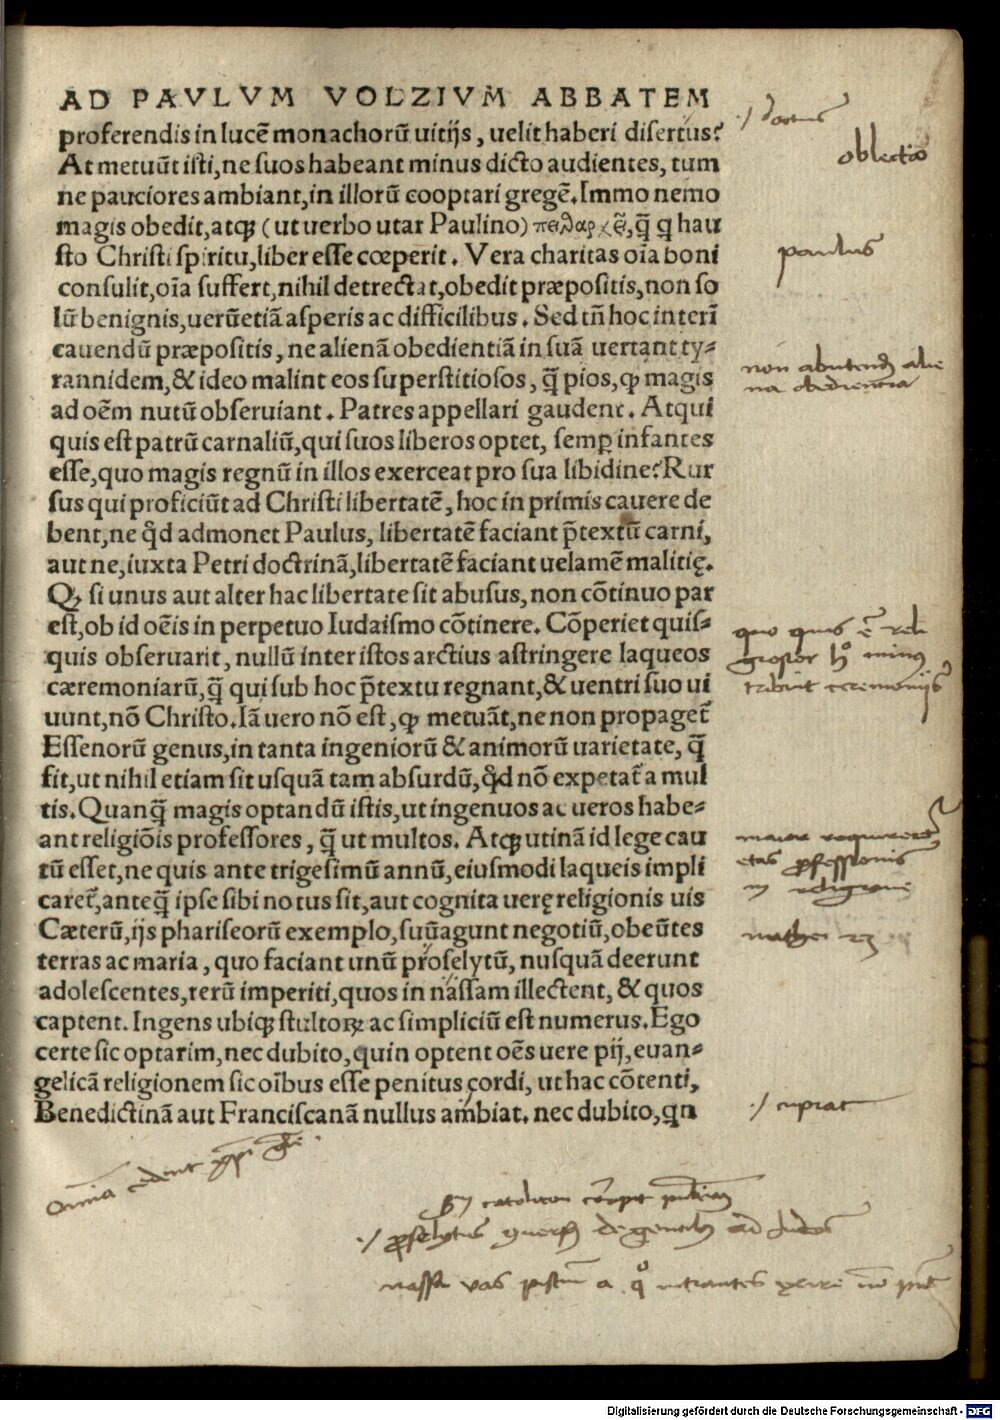 AD PAVLVM VOLZIVM ABBATEM
proferendis in lucẽ monachorũ uitijs, uelit haberi disertus?
At metuũt isti, ne suos habeant minus dicto audientes, tum
ne pauciores ambiant, in illorũ cooptari gregẽ. Immo nemo
magis obedit, atqꝫ (ut uerbo utar Paulino) q̃ q hau
sto Christi spiritu, liber esse cœperit. Vera charitas oĩa boni
consulit, oĩa suffert, nihil detrectat, obedit præpositis, non so
lũ benignis, uerũetiã asperis ac difficilibus. Sed tñ hoc interĩ
cauendũ præpositis, ne alienã obedientiã in suã uertant ty-
rannidem, & ideo malint eos superstitiosos, q̃ pios, ꝙ magis
ad oẽm nutũ obseruiant. Patres appellari gaudent. Atqui
quis est patrũ carnaliũ, qui suos liberos optet, semꝑ infantes
esse, quo magis regnũ in illos exerceat pro sua libidine? Rur
sus qui proficiũt ad Christi libertatẽ, hoc in primis cauere de
bent, ne qd admonet Paulus, libertatẽ faciant p̃textũ carni,
aut ne, iuxta Petri doctrinã, libertatẽ faciant uelamẽ malitię.
Ꝙ si unus aut alter hac libertate sit abusus, non cõtinuo par
est, ob id oẽis in perpetuo Iudaismo cõtinere. Cõperiet quis-
quis obseruarit, nullũ inter istos arctius astringere laqueos
cæremoniarũ, q̃ qui sub hoc p̃textu regnant, & uentri suo ui
uunt, nõ Christo. Iã uero nõ est, ꝙ metuãt, ne non propaget᷑
Essenorũ genus, in tanta ingeniorũ & animorũ uarietate, q̃
fit, ut nihil etiam sit usquã tam absurdũ, qd nõ expetat᷑ a mul
tis. Quanq̃ magis optandũ istis, ut ingenuos ac ueros habe-
ant religiõis professores, q̃ ut multos. Atqꝫ utinã id lege cau
tũ esset, ne quis ante trigesimũ annũ, eiusmodi laqueis impli
caret᷑, anteq̃ ipse sibi notus sit, aut cognita uerę religionis uis
Cæterũ, ijs phariseorũ exemplo, suũ agunt negotiũ, obeũtes
terras ac maria, quo faciant unũ proselytũ, nusquã deerunt
adolescentes, rerũ imperiti, quos in nassam illectent, & quos
captent. Ingens ubiqꝫ stultoꝝ ac simpliciũ est numerus. Ego
certe sic optarim, nec dubito, quin optent oẽs uere pij, euan-
gelicã religionem sic oĩbus esse penitus cordi, ut hac cõtenti,
Benedictinã aut Franciscanã nullus ambiat. nec dubito, qn
oblectio
paulus
non abutendũ alie
na obediencia
quo quis ẽ reli
giosior hͦ minus
tribuit ceremonijs
maior requireret᷑
etas ꝓfessionis
religione
mathei 23
cupiat
Omnia cedent
ꝓselytus
nassa vas a qͦ intrantes exire nõ
Digitalisierung gefördert durch die Deutsche Forschungsgemeinschaft - DFG